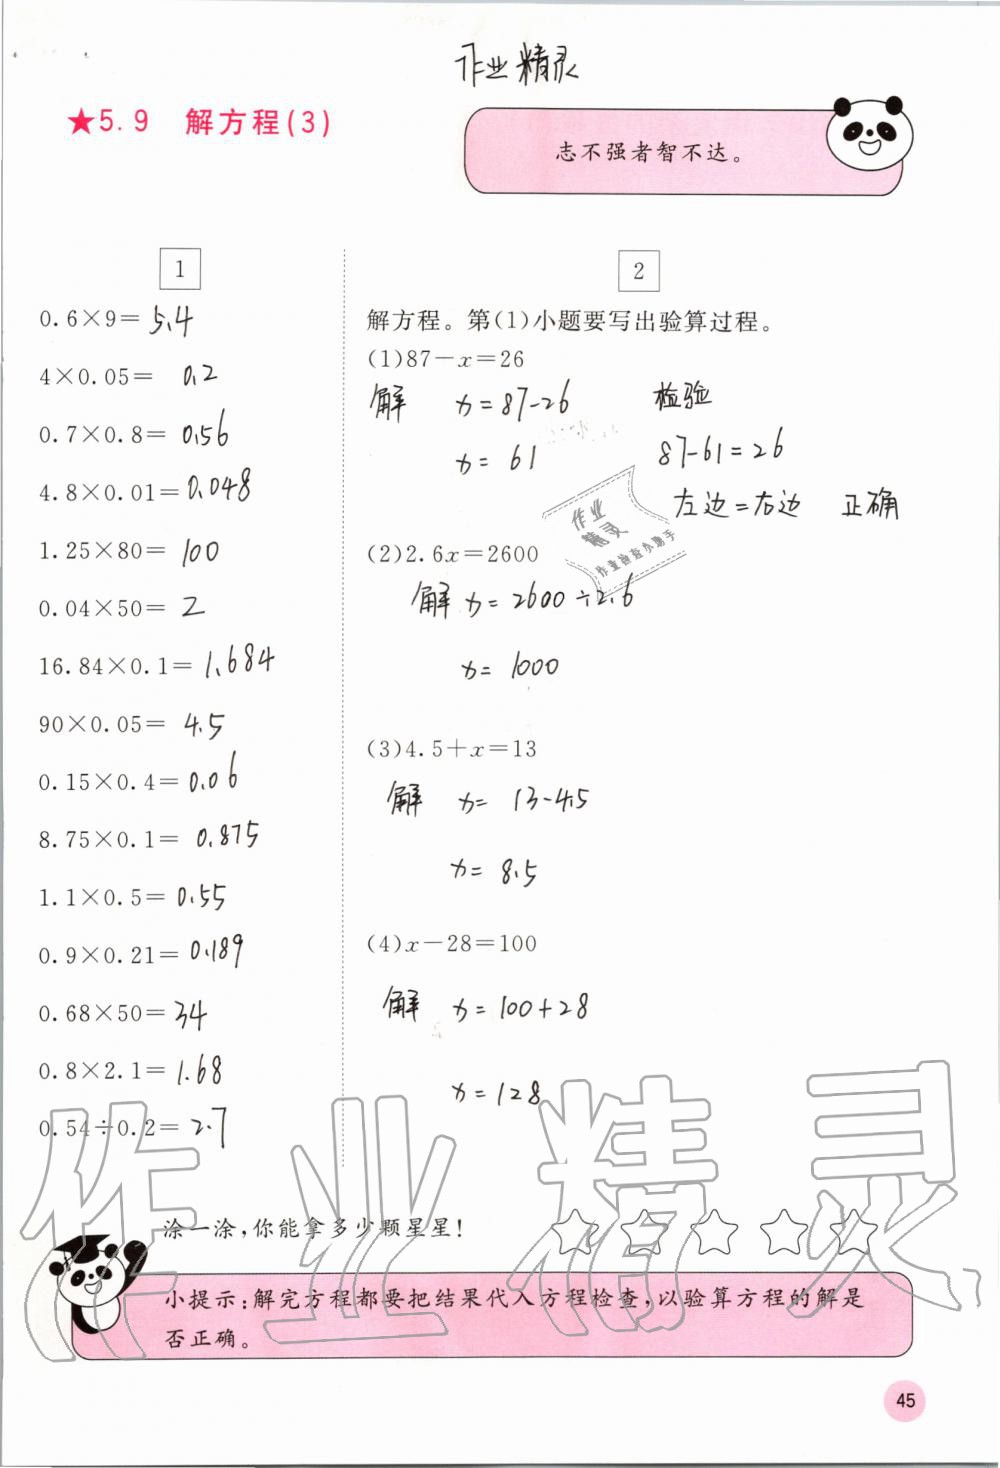 作业精灵
★5.9 解方程(3)
志不强者智不达。
1
0.6×9=5.4
4×0.05=0.2
0.7×0.8=0.56
4.8×0.01=0.048
1.25×80=100
0.04×50=2
16.84×0.1=1.684
90×0.05=4.5
0.15×0.4=0.06
8.75×0.1=0.875
1.1×0.5=0.55
0.9×0.21=0.189
0.68×50=34
0.8×2.1=1.68
0.54÷0.2=2.7
2
解方程。第(1)小题要写出验算过程。
(1)87-x=26
解 x=87-26 检验
x=61 87-61=26
左边=右边 正确
作业
精灵
作业检查小助手
(2)2.6x=2600
解 x=2600÷2.6
x=1000
(3)4.5+x=13
解 x=13-4.5
x=8.5
(4)x-28=100
解 x=100+28
x=128
作业精灵
涂一涂,你能拿多少颗星星!
小提示:解完方程都要把结果代入方程检查,以验算方程的解是
否正确。
45